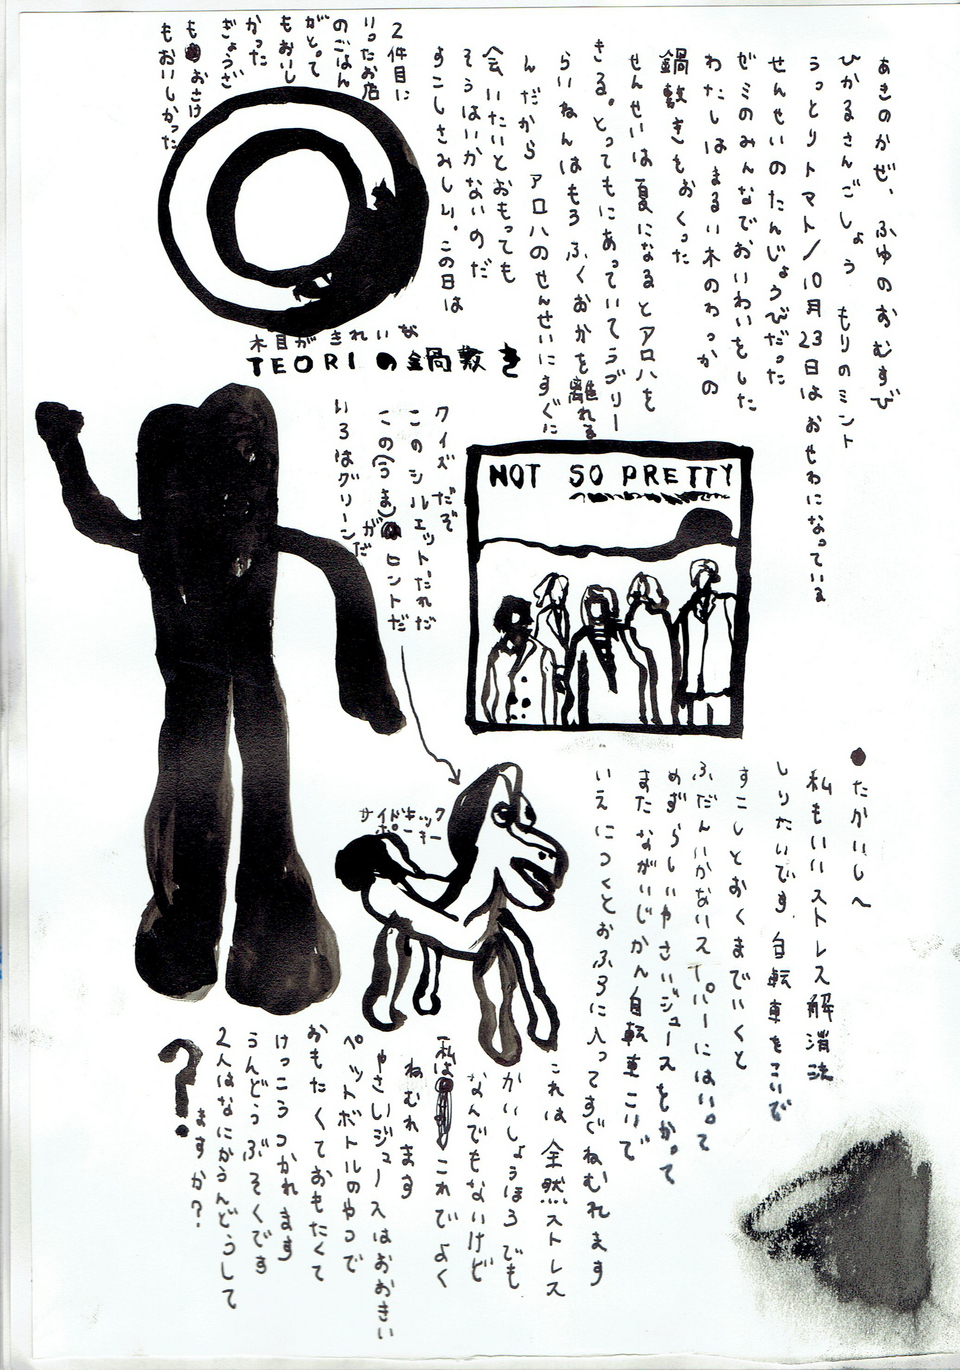 あきのかぜ、ふゆのおむすび
ひかるさんごしょう もりのミント
うっとりトマト/10月23日はおせわになっている
せんせいのたんじょうびだった
ゼミのみんなでおいわいをした
わたしはまるい木のわっかの
鍋敷きをおくった
せんせいは夏になるとアロハを
きる。とってもにあっていてラブリー
らいねんはもうふくおかを離れる
んだからアロハのせんせいにすぐに
会いたいとおもっても
そうはいかないのだ
すこしさみしい。この日は
2件目に
いったお店
のごはん
がとって
もおいし
かった
ぎょうざ
もおさけ
もおいしかった
木目がきれいな
TEORIの鍋敷き
クイズだぞ
このシルエットだれだ
この(うま)がヒントだ
いろはグリーンだ
NOT SO PRETTY
●たかいしへ
私もいいストレス解消法
しりたいです。自転車をこいで
すこしとおくまでいくと
ふだんいかないスーパーにはいって
めずらしいやさいジュースをかって
またながいじかん自転車こいで
いえにつくとおふろに入ってすぐねむれます
これは全然ストレス
かいしょうほうでも
なんでもないけど
私はこれでよく
ねむれます
やさいジュースはおおきい
ペットボトルのやつで
おもたくておもたくて
けっこうつかれます
うんどうぶそくです
2人はなにかうんどうして
ますか?
?